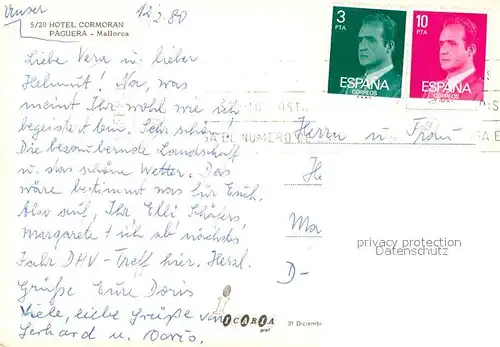 Unser 12.2.80
5/20 HOTEL CORMORAN
PAGUERA - Mallorca
Liebe Vera u. lieber
Helmut! Na, was
meint Ihr wohl wie ich
begeistert bin. Sehr schön!
Die bezaubernde Landschaft
u. das schöne Wetter. Das
wäre bestimmt was für Euch.
Also auf, Ihr, Elli, Schäfers
Margarete + ich ab nächstes
Jahr DKV-Treff hier. Herzl.
Grüße Eure Doris
Viele, liebe Grüße von
Gerhard u. Doris.
3
PTA
ESPAÑA
CORREOS
10
PTA
ESPAÑA
CORREOS
EL NUMERO D
Herrn u. Frau
He
Ma
D-
privacy protection
Datenschutz
ICARIA
31 Diciembr